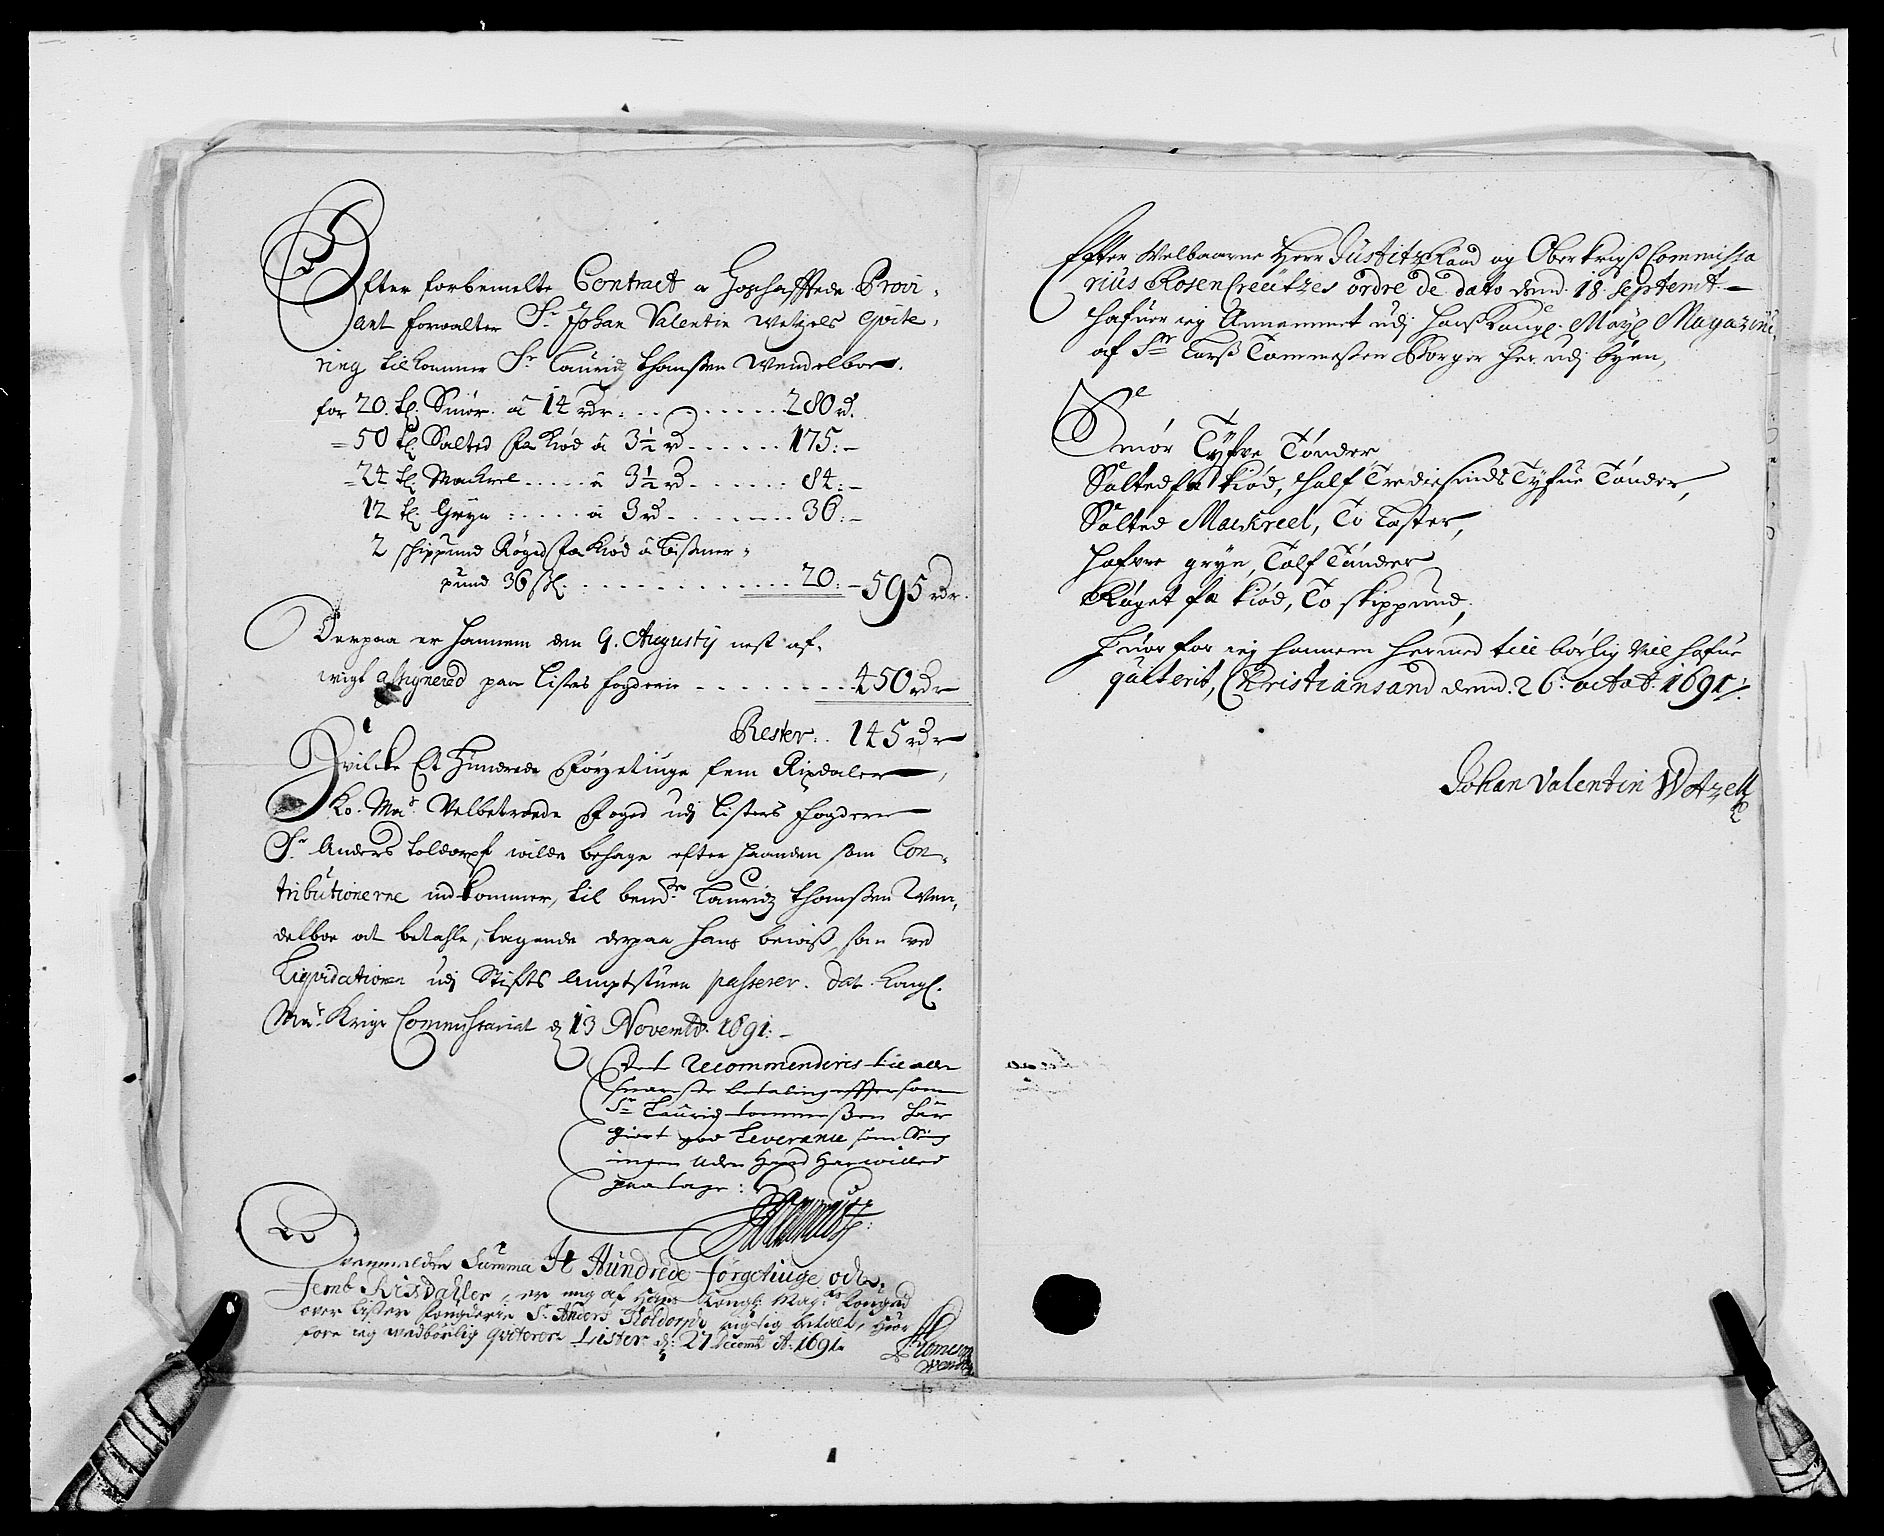 Efter forbemelte Contract a hoschafftede Provi,
ant forvalter Sr Johan Valentin Wetzels qvite,
ring tilkommer Sr Lauridz Thomßen Wendelboe.
for 20. tl. Smør â 14 rdr. . . . . . . . . . 280 rd.
50 tl Salted fæ Kiød â 3½ rd . . . . . . 175:-
24 tl Mackrel . . . . . â 3½ rd . . . . . . 84:-
12 tl. Gryn : . . . . â 3 rd . . . . . . . 36:-
2 schippund Røged fæ Kiød â Lißmer,
pund 36 ß. . . . . . . . . . . . . . 20:- 595 rdr.
Derpaa er hannem den 9. Augustij nest af,
wigt assignered paa Listes fogderie . . . . . . . . 450 rdr
Rester . . 145 rdr
Hvilcke Et Hundrede Førgetiuge fem Rixdaler,
Ko. Mas. Velbetroede Foged udj Listers fogderie
Sr. Anders Toldorpf wilde behage efter haanden som Con,
tributionerne indkommer, til bemte Lauridz Thomßen Wen,
delboe at betahle, tagende derpaa hans bewiß, som ved
Liqvidationen udj Stifts Amptstuen passerer. Dat. Kongl.
Mas. Krigs Commissariat d. 13 Novembr. 1691.-
Det recommenderis til aller
snareste betaling effter som
Sr Laurig tommeßen har
giort god Leverance som
ingen uden hand har willed
paatage:
Ovenmelte Summa It Hundrede førgetiuge och
femb Rixdahler, er mig af Hans Kongl: Mays Fougeed
over Lister Fougderie Sr. Anders Toldorph rigtig betalt, Hvor
fore ieg wedbørlig qviterer Lister d: 27 Decemb A: 1691.
Thomesen
Wendelb

Efter Welbaarne Herr Justitz Raad og Ober Krigß Commissa
rius RosenCreützes ordre de dato dend. 18. Septemt.
hafuer ieg Annammet udj hanß Kongl. Mayt Magazin
af Sr Larß Tommeßen Borger her udj byen,
Smør Tyfve Tønder
Salted fæ kiød, half Trediesinds Tyfue Tønder,
Salted Mackreel, To Læster,
Hafvre gryn, Tolf Tønder
Røget fæ kiød, To skippund,
Huorfor ieg hannem hermed till børlig vill hafue
quitterit, Christiansand dend. 26. octob. 1691.
Johan Valentin Wetzell